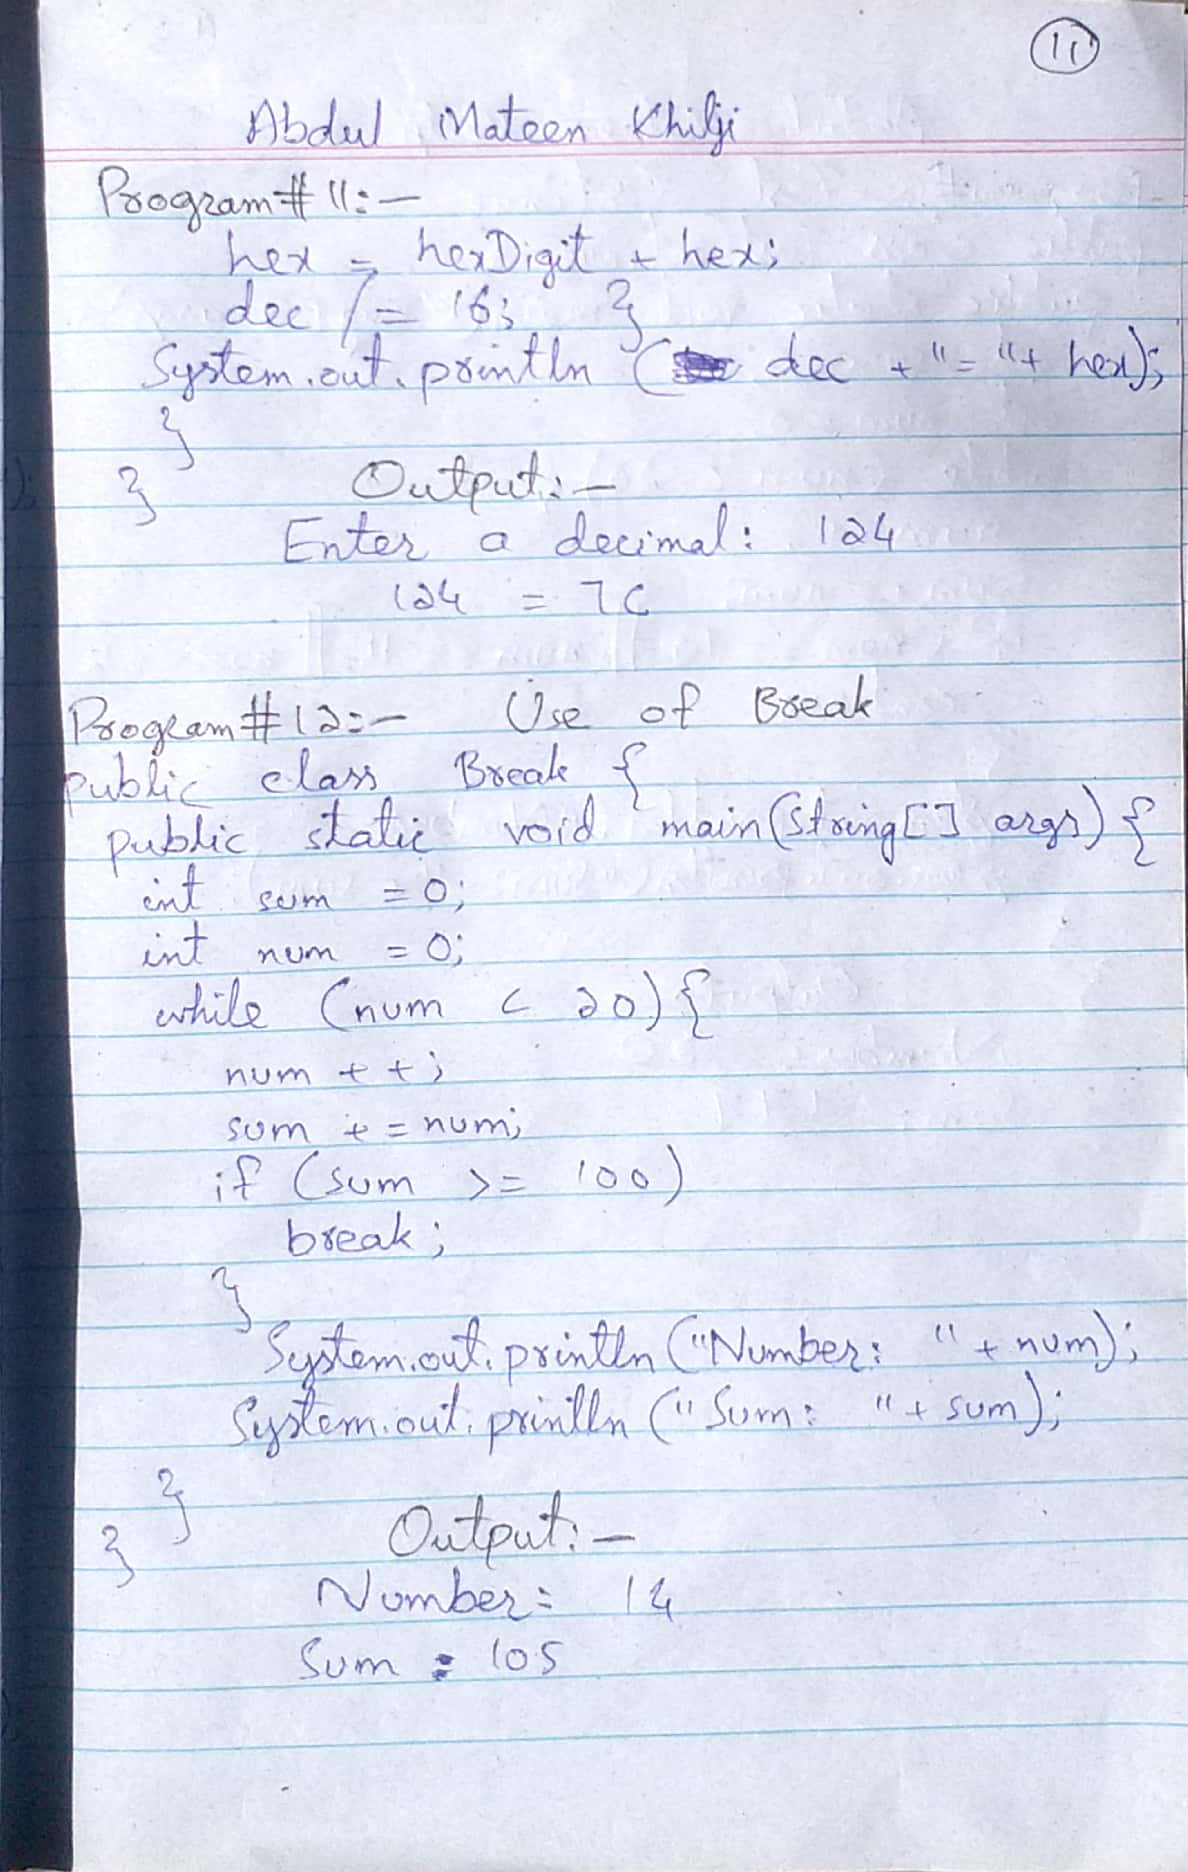 11
Abdul Mateen Khilji
Program # 11:-
hex = hexDigit + hex;
dec /= 16; }
System.out.println ( dec + "=" + hex);
}
} Output:-
Enter a decimal: 124
124 = 7C
Program # 12:- Use of Break
public class Break {
public static void main(String[] args) {
int sum = 0;
int num = 0;
while (num < 20) {
num ++;
sum += num;
if (sum >= 100)
break;
}
System.out.println ("Number: " + num);
System.out.println ("Sum: " + sum);
}
} Output:-
Number: 14
Sum : 105